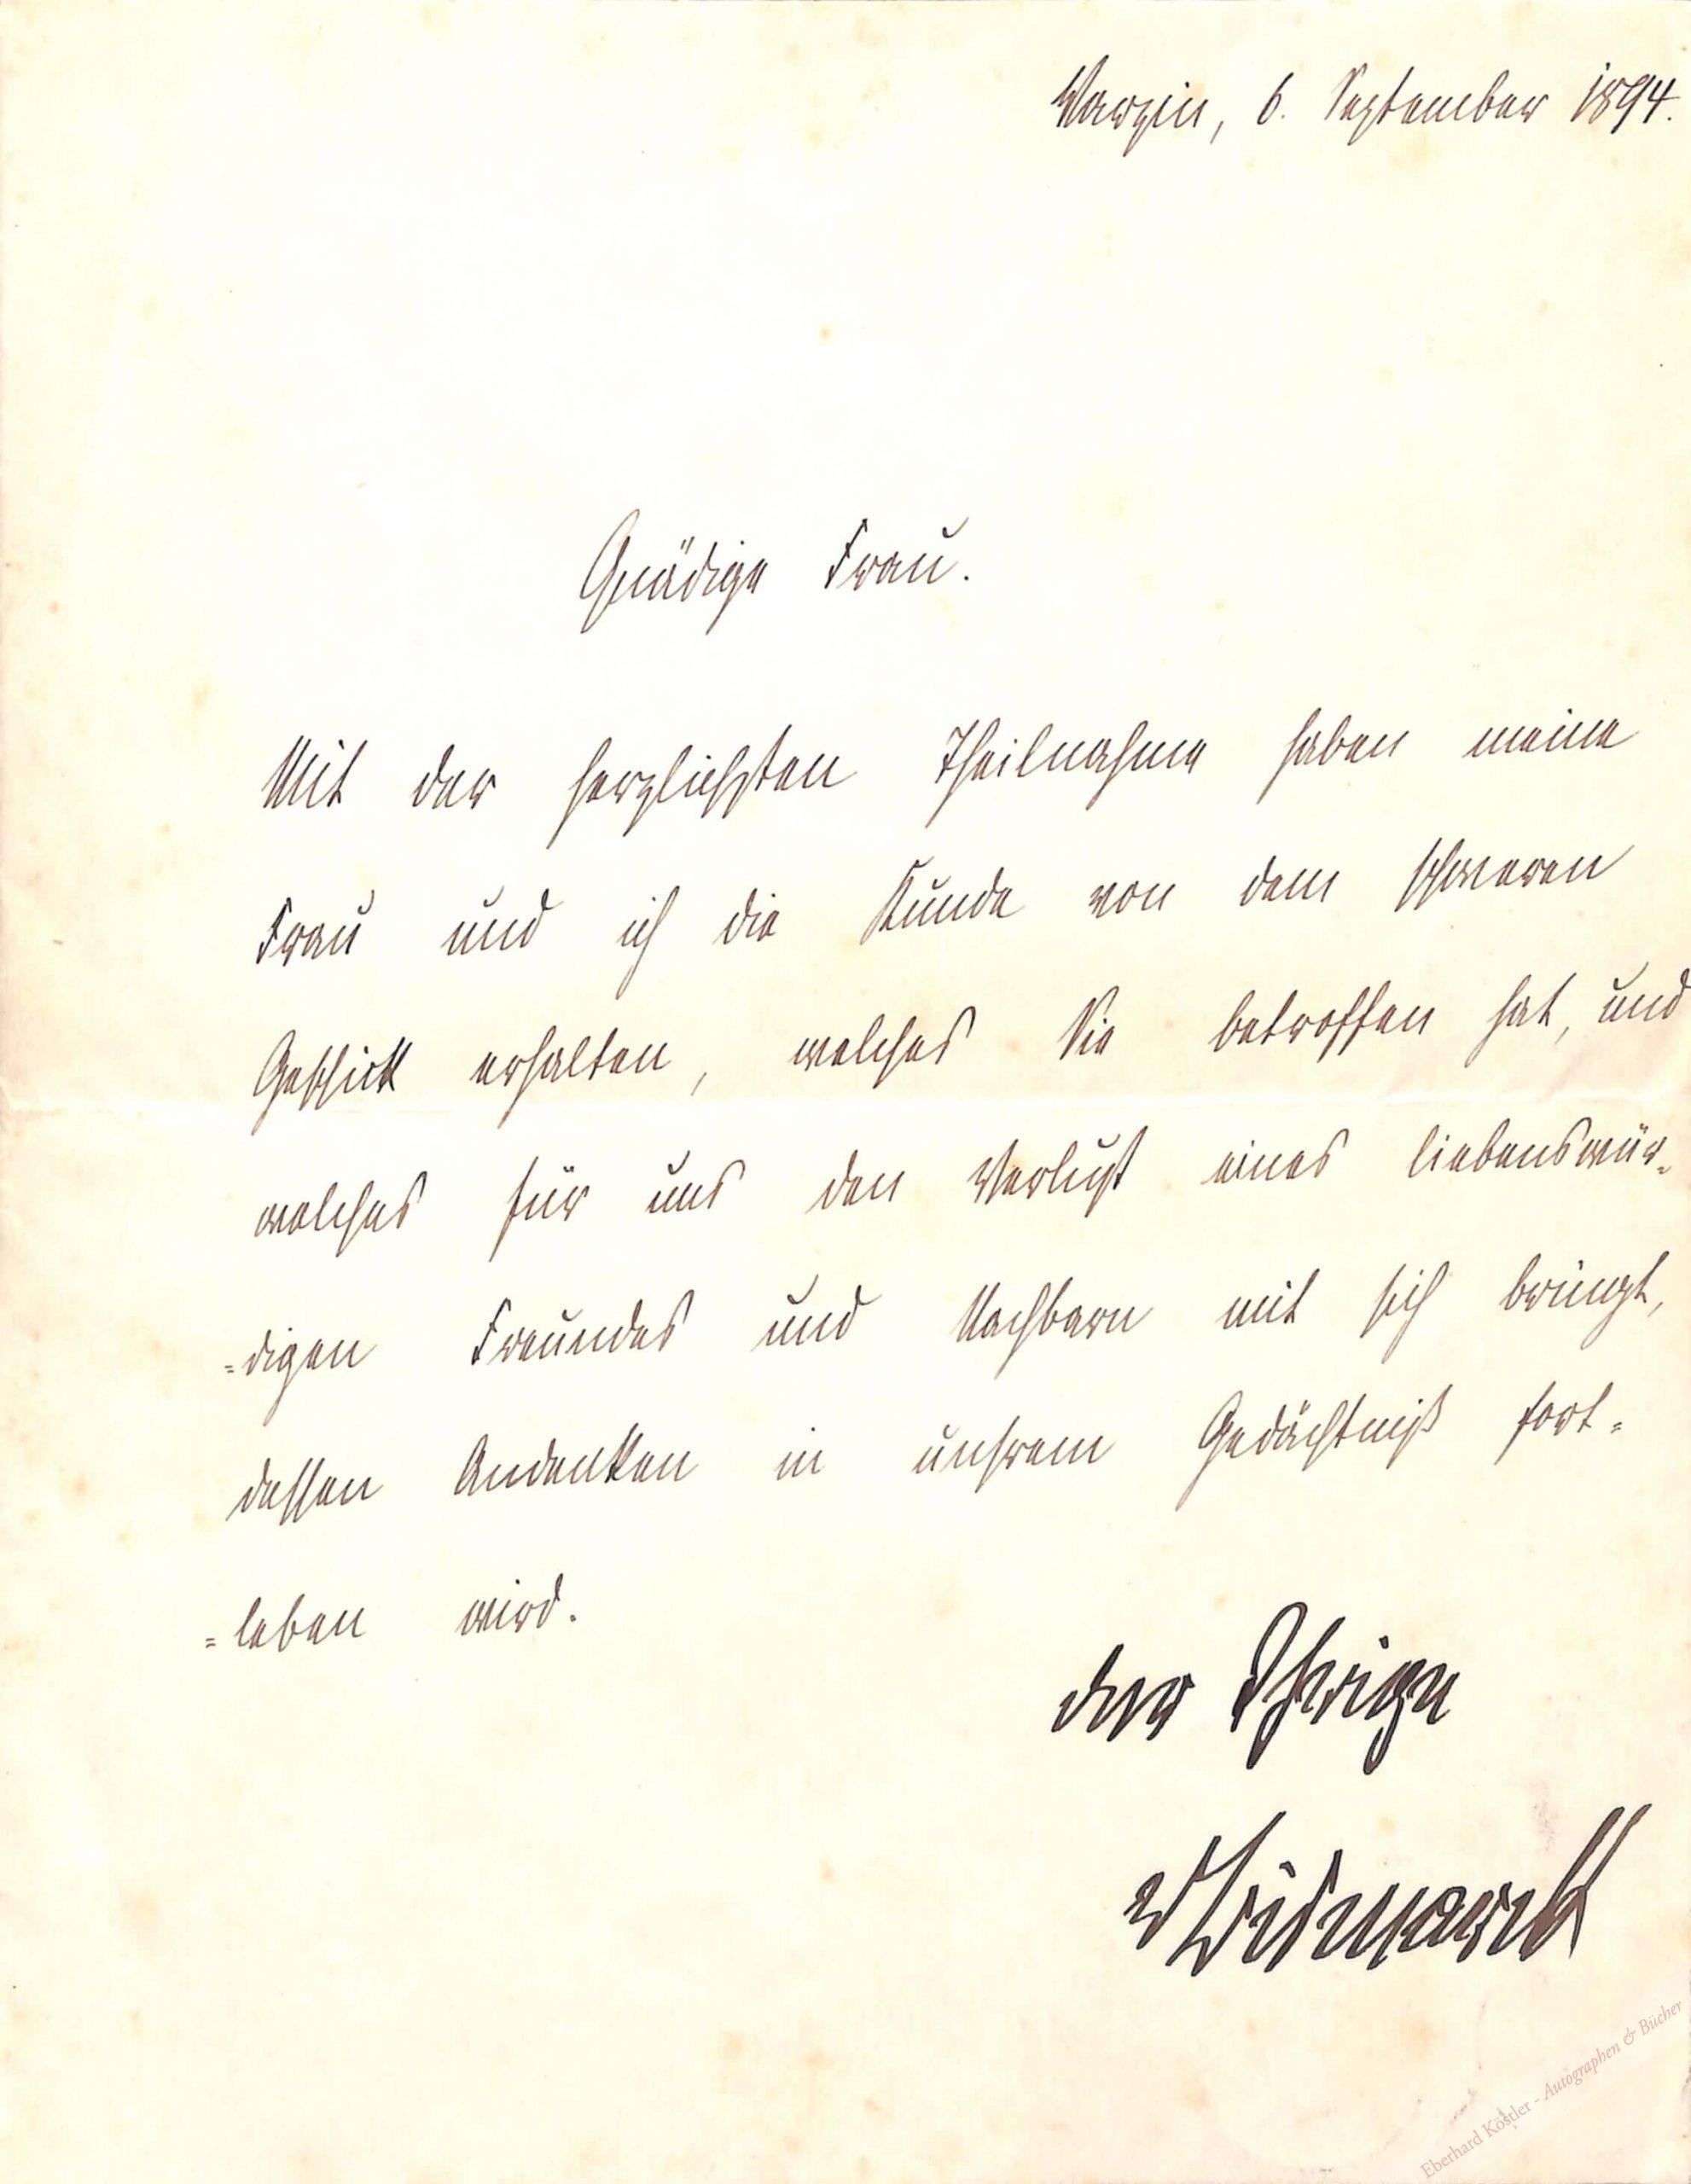 Varzin, 6. September 1894.
Gnädige Frau.
Mit der herzlichsten Theilnahme haben meine
Frau und ich die Kunde von dem schweren
Geschick erhalten, welches Sie betroffen hat, und
welches für uns den Verlust eines liebenswür-
=digen Freundes und Nachbarn mit sich bringt,
dessen Andenken in unsrem Gedächtniß fort=
=leben wird.
der Ihrige
vBismarck
Eberhard Köstler - Autographen & Bücher